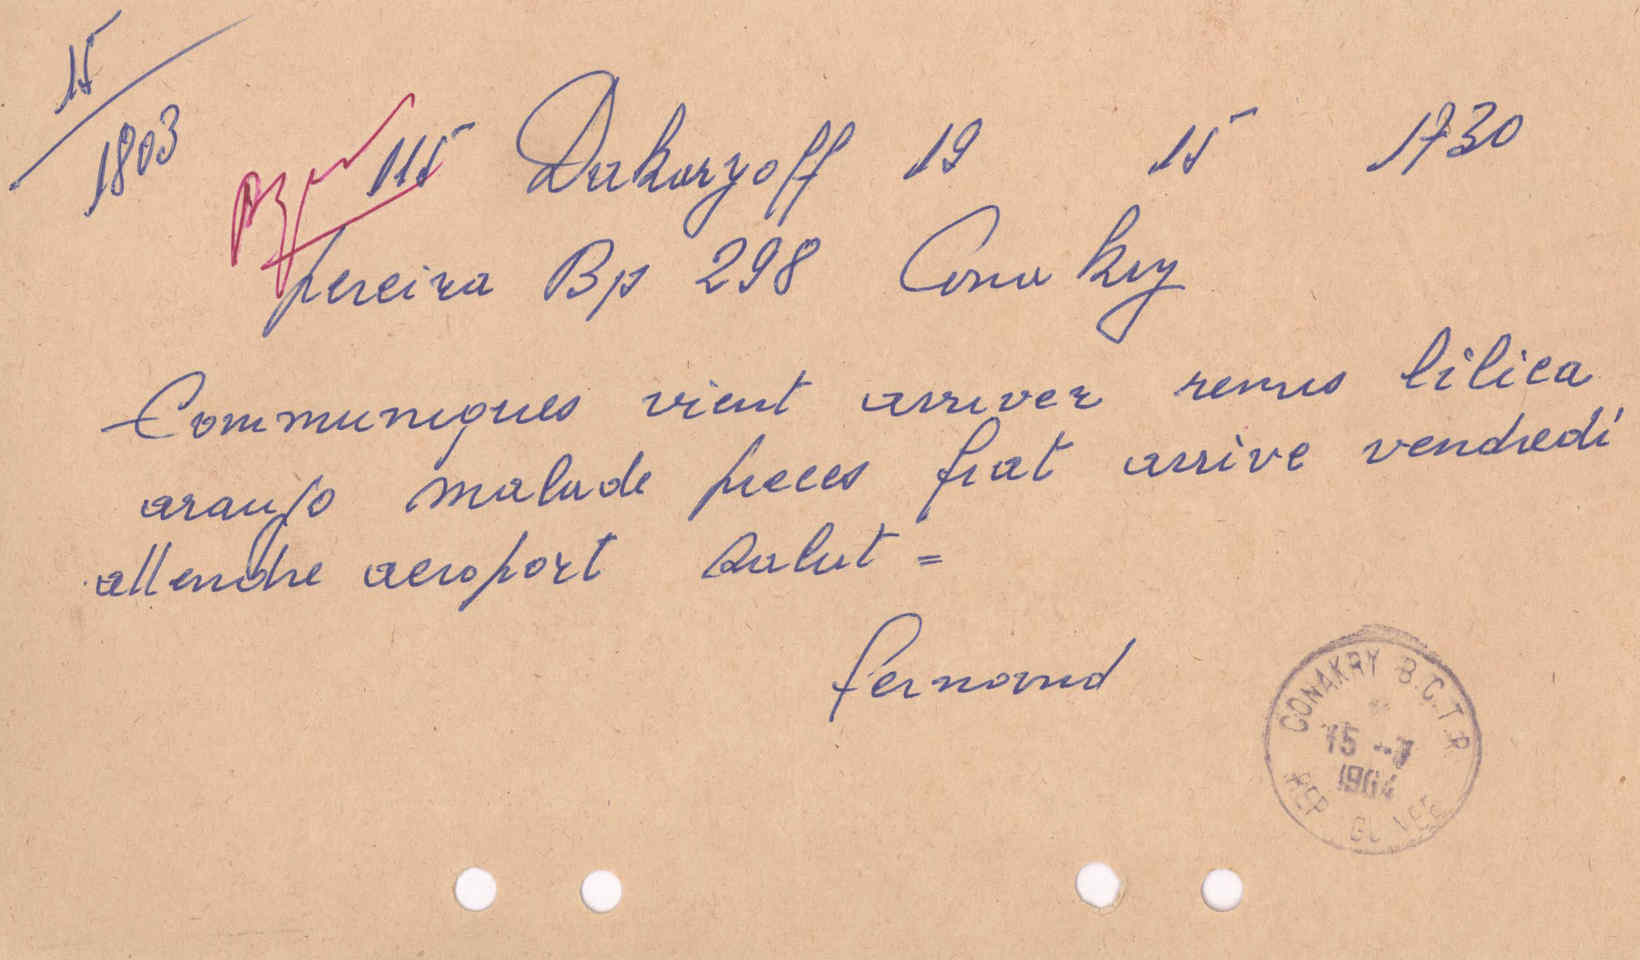 15
1803
115 Dakaryoff 19 15 1730
pereira Bp 298 Conakry
Communiques vient arriver remis lilica
araujo malade pieces fiat arrive vendredi
attendre aeroport salut =
fernand
CONAKRY B.C.T.R
15 -7
1964
REP. GUINEE